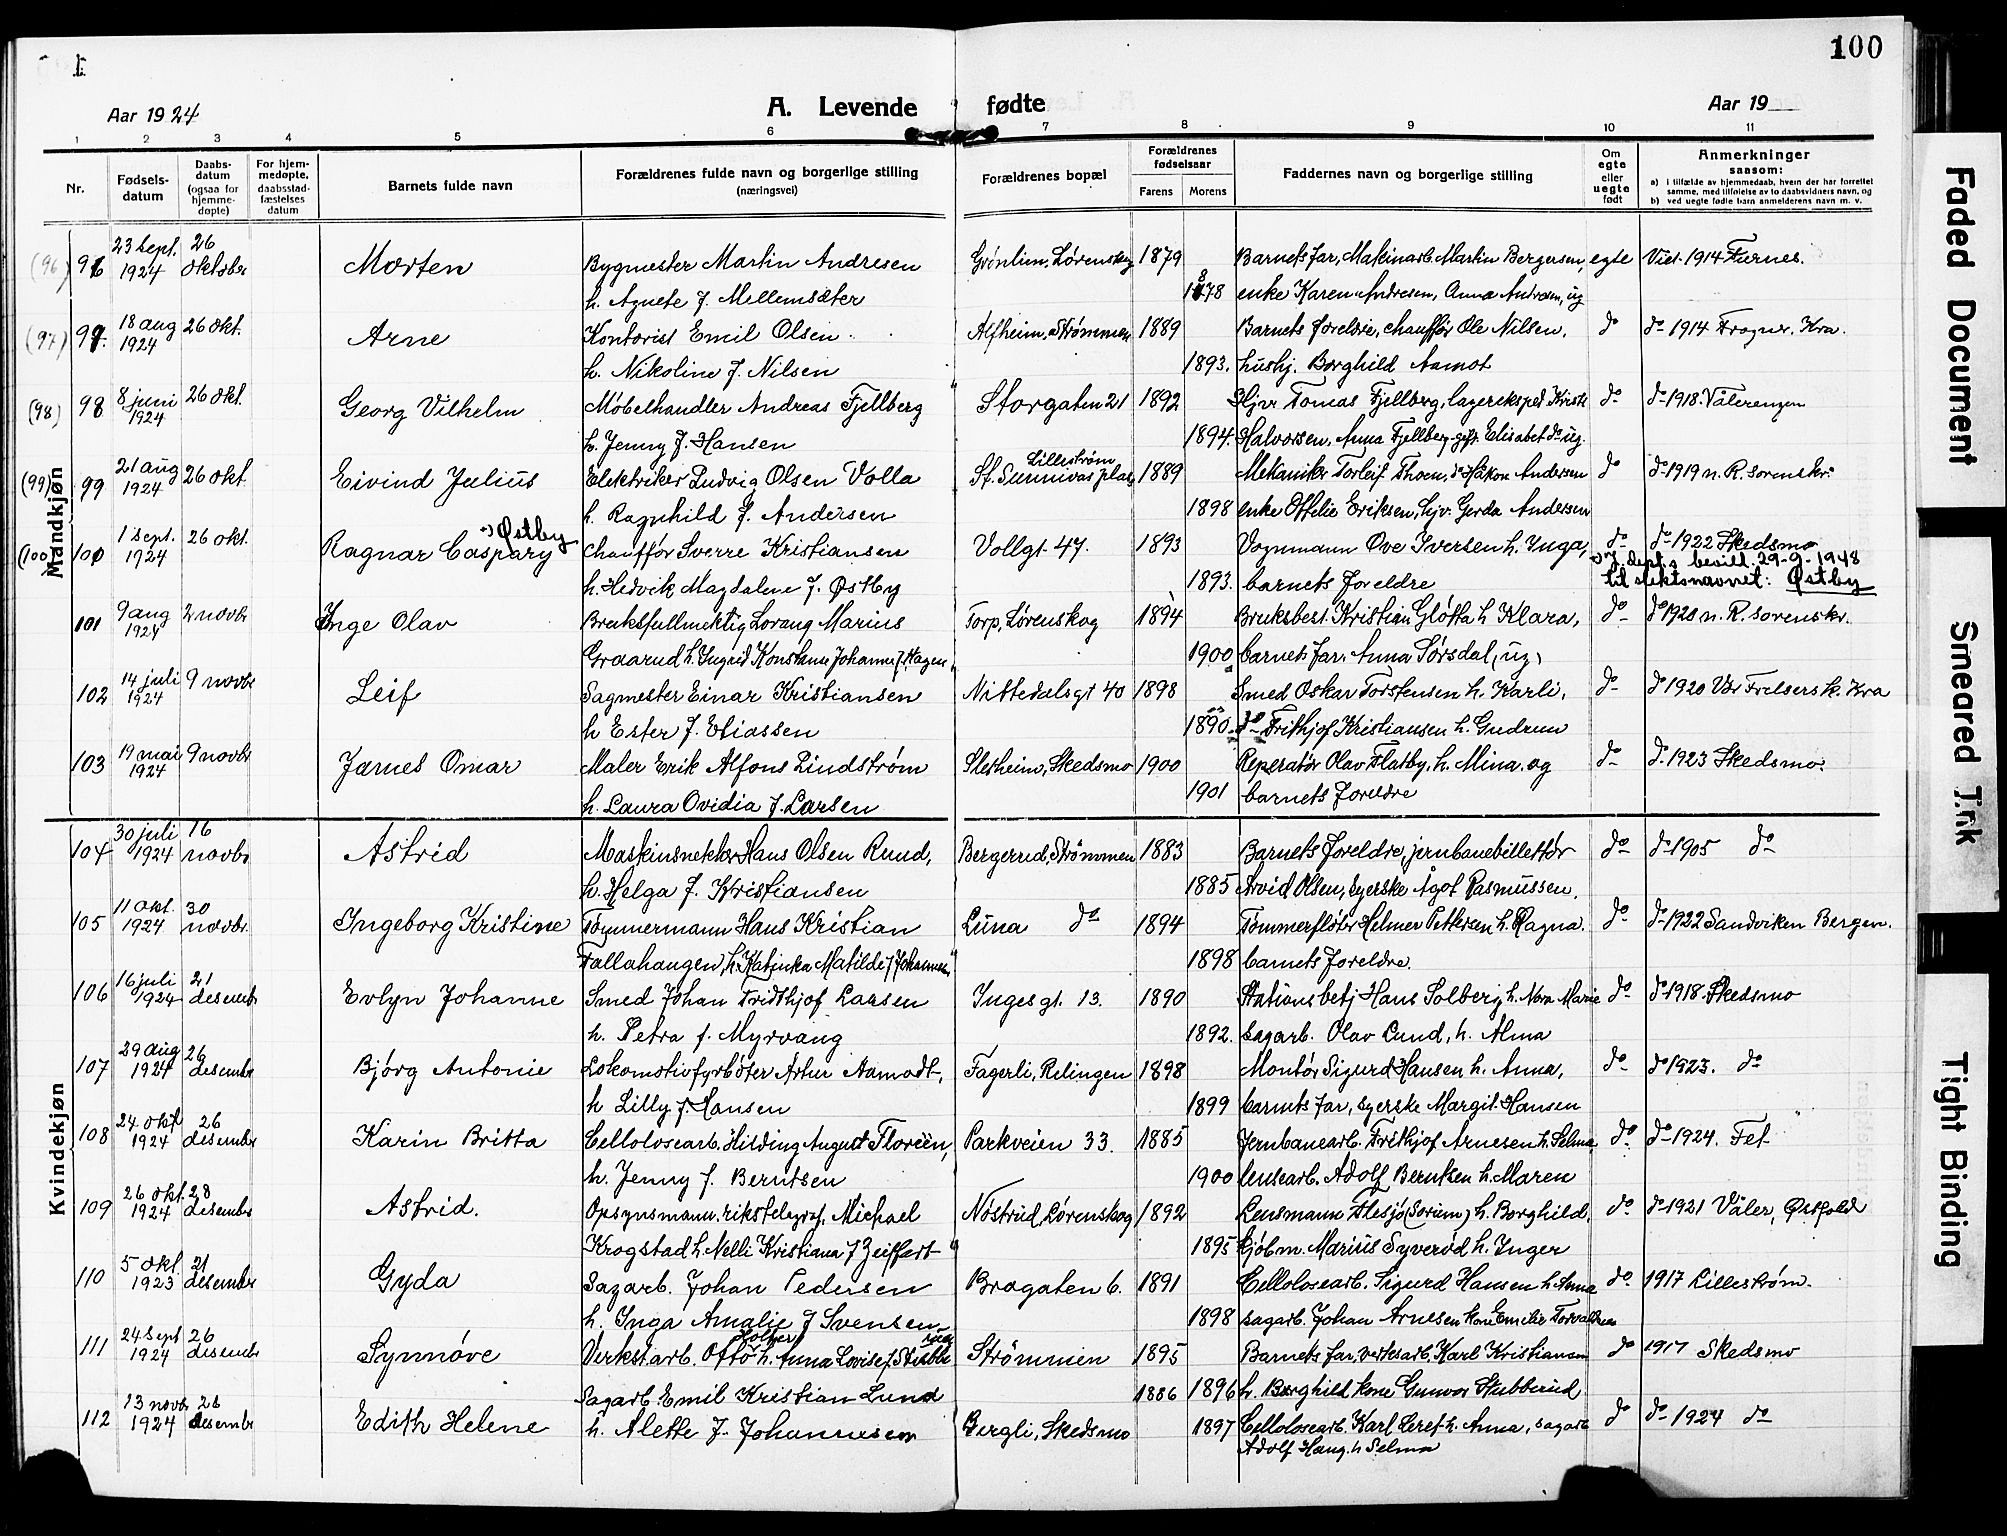 100
Aar 1924
A. Levende fødte
Aar 19
1 2 3 4 5 6 7 8 9 10 11
Nr.
Fødsels-
datum
Daabs-
datum
(ogsaa for
hjemme-
døpte)
For hjem-
medøpte,
daabsstad-
fæstelses
datum
Barnets fulde navn
Forældrenes fulde navn og borgerlige stilling
(næringsvei)
Forældrenes bopæl
Forældrenes
fødselsaar
Farens Morens
Faddernes navn og borgerlige stilling
Om
egte
eller
uegte
født
Anmerkninger
saasom:
a) i tilfælde av hjemmedaab, hvem der har forrettet
samme, med tilføielse av to daabsvidners navn, og
b) ved uegte fødte barn anmelderens navn m. v.
Mandkjøn
(96) 96 23 sept. 1924 26 oktobr Morten Bygmester Martin Andresen Grønlien, Lørenskog 1879 Barnets far, Maskinarb. Martin Bergersen, egte Viet 1914 Furnes.
h. Agnete f. Mellemsæter 1878 enke Karen Andresen, Anna Andresen, ug
(97) 97. 18 aug 1924 26 okt. Arne Kontorist Emil Olsen Alfheim, Strømmen 1889 Barnets foreldre, chauffør Ole Nilsen, do do 1914 Frogner. Kra.
h. Nikoline f. Nilsen 1893. hushj. Borghild Aamot
(98) 98 8 juni 1924 26 okt. Georg Vilhelm Møbelhandler Andreas Fjellberg Storgaten 21 1892 Hjvr Tomas Fjellberg, lagereksped. Kristi do do 1918. Vålerengen
h. Jenny f. Hansen 1894. Halvorsen, Anna Fjellberg gift, Elisabet do ug.
(99) 99 21 aug 1924 26 okt. Eivind Julius Elektriker Ludvig Olsen Volla Lillestrøm St. Sunnivas plas 1889 Mekaniker Torleif Thoen, do Håkon Andersen do do 1919 n. R. sorenskr.
h. Ragnhild f. Andersen 1898 enke Ottelie Eriksen, hjv. Gerda Andersen
(100) 100 1 sept. 1924 26 okt. Ragnar Caspary Østby chauffør Sverre Kristiansen Vollgt. 47. 1893 Vognmann Ove Iversen h. Inga, do do 1922 Skedsmo
h. Hedvik Magdalene f. Østby 1893. barnets foreldre
J. dept.s bevill. 29-9-1948
til slektsnavnet: Østby
101 9 aug 1924 2 novbr Inge Olav Bruksfullmektig Lorang Marius Torp, Lørenskog 1894 Bruksbest. Kristian Gløtta h Klara, do do 1920 n. R. sorenskr.
Graarud h. Ingrid Konstanse Johanne f. Hagen 1900 barnets far, Anna Sørsdal, ug.
102 14 juli 1924 9 novbr Leif Sagmester Einar Kristiansen Nittedalsgt 40 1898 Smed Oskar Torstensen h. Karli, do do 1920 Vår Frelsers k. Kra
h Ester f. Eliassen 1890 do Frithjof Kristiansen h. Gudrun
103 19 mai 1924 9 novbr James Omar Maler Erik Alfons Lindstrøm Sletheim, Skedsmo 1900 Reperatør Olav Flatby, h. Mina og do do 1923 Skedsmo.
h. Laura Ovidia f. Larsen 1901 barnets foreldre
Kvindekjøn
104 30 juli 1924 16 novbr Astrid Maskinsnekker Hans Olsen Ruud, Bergerud, Strømmen 1883 Barnets foreldre, jernbanebillettør do do 1905 do
h. Helga f. Kristiansen 1885 Arvid Olsen, syerske Ågot Rasmussen.
105 11 okt. 1924 30 novbr. Ingeborg Kristine Tømmermann Hans Kristian Luna do 1894 Tømmerfløter Helmer Pettersen h. Ragna. do do 1922 Sandviken Bergen.
Fallahaugen, h. Katinka Matilde f. Johannesen 1898 barnets foreldre.
106 16 juli 1924 21 desembr Evlyn Johanne Smed Johan Fridthjof Larsen Inges gt. 13. 1890 Stationsbetj Hans Solberg h. Nora Marie do do 1918. Skedsmo
h. Petra f. Myrvang 1892. sagarb. Olav Lund, h. Alma
107 29 aug 1924 26 desembr Bjørg Antonie Lokomotivfyrbøter Artur Aamodt, Fagerli, Relingen 1898 Montør Sigurd Hansen h. Anna, do do 1923. do
h Lilly f. Hansen 1899 barnets far, syerske Margit Hansen
108 24 okt 1924 26 desember Karin Britta Cellolosearb. Hilding August Floreèn, Parkveien 33. 1885 Jernbanearb. Frithjof Arnesen h. Selma, do do 1924. Fet
h. Jenny f. Berntsen 1900 lensearb. Adolf Berntsen h. Maren
109 26 okt. 1924 28 desembr Astrid. Opsynsmann. rikstelegraf. Michael Nøstrud, Lørenskog 1892 Lensmann Flesjø (Sørum) h. Borghild, do do 1921 Våler, Østfold
Krogstad h. Nelli Kristiana f Zeiffert 1895 kjøbm. Marius Syverød h. Inger
110 5 okt. 1923 21 desember Gyda Sagarb. Johan Pedersen Bragaten 6. 1891 Cellolosearb. Sigurd Hansen h Anna do 1917 Lillestrøm.
h. Inga Amalie f Svensen 1898 sagarb. Johan Arnesen kone Emelie
111 24 sept 1924 26 desembr Synnøve Verkstarb. Otto h. Anna Lovise f Stubberud Strømmen 1895 Barnets far, verksarb. Karl Kristiansen do 1917 Skedsmo
1896 h. Borghild kone Gunvor Stubberud
112 13 novbr 1924 28 desembr Edith Helene Sagarb. Emil Kristian Lund Bergli, Skedsmo 1886 do do 1924 do
h. Alette f. Johannesen 1897 Cellolosearb. Karl h. Anna, sagarb
Adolf Haug. h Selma
Faded Document
Smeared Ink
Tight Binding